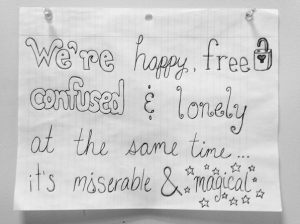 We're happy, free
confused & lonely
at the same time...
it's miserable & magical